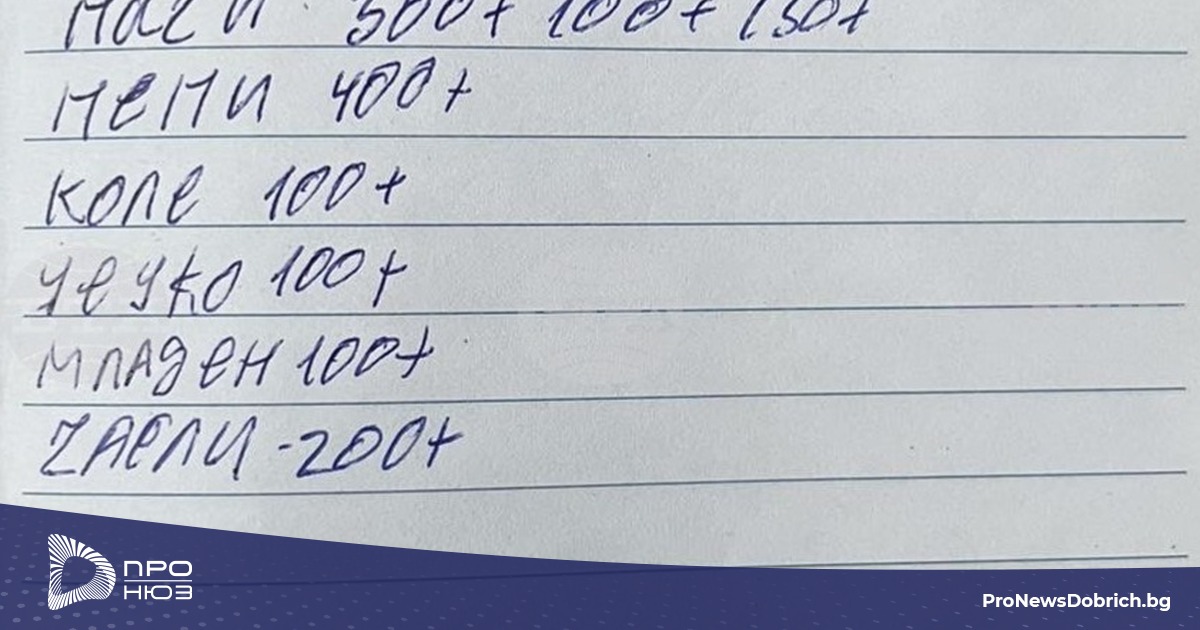 500+ 100+ 150+
МЕМИ 400+
КОЛЕ 100+
УЕУКО 100+
МЛАДЕН 100+
ZАЕЛИ -200+
ПРО
НЮЗ
ProNewsDobrich.bg